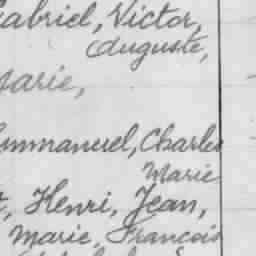 Gabriel, Victor,
Auguste,
Marie,
Emmanuel, Charles
Marie
Henri, Jean,
Marie, François